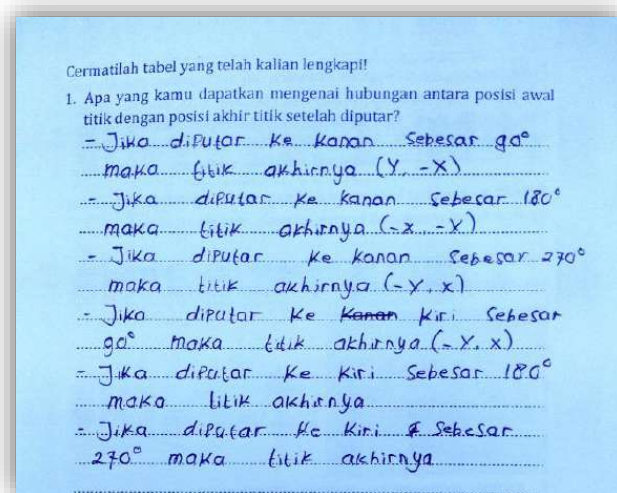 Cermatilah tabel yang telah kalian lengkapi!
1. Apa yang kamu dapatkan mengenai hubungan antara posisi awal
titik dengan posisi akhir titik setelah diputar?
- Jika diputar ke kanan sebesar 90°
maka titik akhirnya (Y, -X)
- Jika diputar ke kanan sebesar 180°
maka titik akhirnya (-x, -Y)
- Jika diputar ke kanan sebesar 270°
maka titik akhirnya (-Y, x)
- Jika diputar ke kanan kiri sebesar
90° maka titik akhirnya (-Y, x)
- Jika diputar ke kiri sebesar 180°
maka titik akhirnya
- Jika diputar ke kiri sebesar
270° maka titik akhirnya